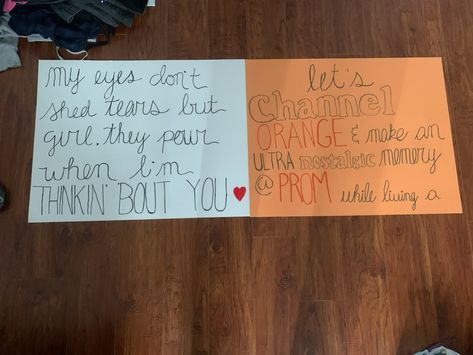 my eyes don't
shed tears but
girl, they pour
when I'm
THINKIN' BOUT YOU
let's
Channel
ORANGE & make an
ULTRA nostalgic memory
@ PROM while living a